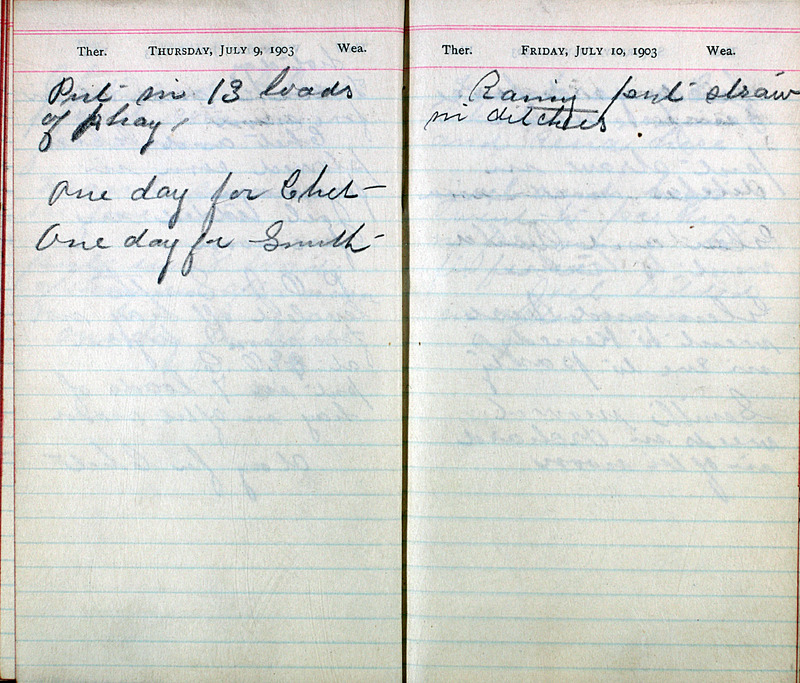 Ther. Thursday, July 9, 1903 Wea.
Put in 13 loads
of hay,
One day for Chet
One day for Smith
Ther. Friday, July 10, 1903 Wea.
Rainy put straw
in ditches.